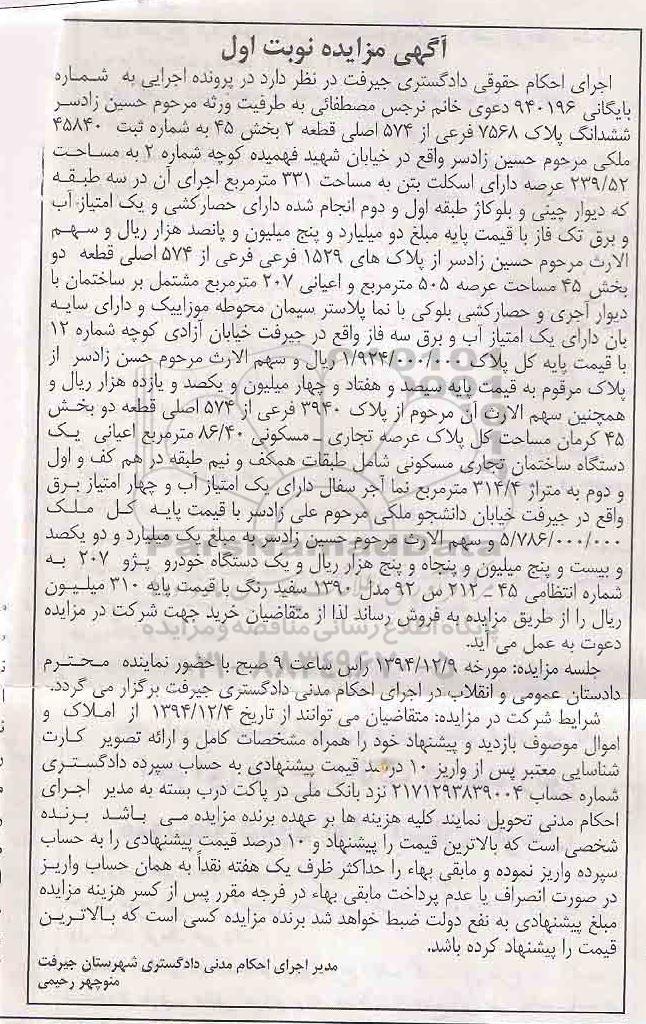 آگهی مزایده نوبت اول
اجرای احکام حقوقی دادگستری جیرفت در نظر دارد در پرونده اجرایی به شماره
بایگانی ۹۴۰۱۹۶ دعوی خانم نرجس مصطفائی به طرفیت ورثه مرحوم حسین زادسر
ششدانگ پلاک ۷۵۶۸ فرعی از ۵۷۴ اصلی قطعه ۲ بخش ۴۵ به شماره ثبت ۴۵۸۴۰
ملکی مرحوم حسین زادسر واقع در خیابان شهید فهمیده کوچه شماره ۲ به مساحت
۲۳۹/۵۲ عرصه دارای اسکلت بتن به مساحت ۳۳۱ مترمربع اجرای آن در سه طبقه
که دیوار چینی و بلوکاژ طبقه اول و دوم انجام شده دارای حصارکشی و یک امتیاز آب
و برق تک فاز با قیمت پایه مبلغ دو میلیارد و پنج میلیون و پانصد هزار ریال و سهم
الارث مرحوم حسین زادسر از پلاک های ۱۵۲۹ فرعی فرعی از ۵۷۴ اصلی قطعه دو
بخش ۴۵ مساحت عرصه ۵۰۵ مترمربع و اعیانی ۲۰۷ مترمربع مشتمل بر ساختمان با
دیوار آجری و حصارکشی بلوکی با نما پلاستر سیمان محوطه موزاییک و دارای سایه
بان دارای یک امتیاز آب و برق سه فاز واقع در جیرفت خیابان آزادی کوچه شماره ۱۲
با قیمت پایه کل پلاک ۱/۹۲۴/۰۰۰/۰۰۰ ریال و سهم الارث مرحوم حسن زادسر از
پلاک مرقوم به قیمت پایه سیصد و هفتاد و چهار میلیون و یکصد و یازده هزار ریال و
همچنین سهم الارث آن مرحوم از پلاک ۳۹۴۰ فرعی از ۵۷۴ اصلی قطعه دو بخش
۴۵ کرمان مساحت کل پلاک عرصه تجاری ـ مسکونی ۸۶/۴۰ مترمربع اعیانی یک
دستگاه ساختمان تجاری مسکونی شامل طبقات همکف و نیم طبقه در هم کف و اول
و دوم به متراژ ۳۱۴/۴ مترمربع نما آجر سفال دارای یک امتیاز آب و چهار امتیاز برق
واقع در جیرفت خیابان دانشجو ملکی مرحوم علی زادسر با قیمت پایه کل ملک
۵/۷۸۶/۰۰۰/۰۰۰ و سهم الارث مرحوم حسین زادسر به مبلغ یک میلیارد و دو یکصد
و بیست و پنج میلیون و پنجاه و پنج هزار ریال و یک دستگاه خودرو پژو ۲۰۷ به
شماره انتظامی ۴۵ ـ ۲۱۲ س ۹۲ مدل ۱۳۹۰ سفید رنگ با قیمت پایه ۳۱۰ میلیون
ریال را از طریق مزایده به فروش رساند لذا از متقاضیان خرید جهت شرکت در مزایده
دعوت به عمل می آید.
جلسه مزایده: مورخه ۱۳۹۴/۱۲/۹ راس ساعت ۹ صبح با حضور نماینده محترم
دادستان عمومی و انقلاب در اجرای احکام مدنی دادگستری جیرفت برگزار می گردد.
شرایط شرکت در مزایده: متقاضیان می توانند از تاریخ ۱۳۹۴/۱۲/۴ از املاک و
اموال موصوف بازدید و پیشنهاد خود را همراه مشخصات کامل و ارائه تصویر کارت
شناسایی معتبر پس از واریز ۱۰ درصد قیمت پیشنهادی به حساب سپرده دادگستری
شماره حساب ۲۱۷۱۲۹۳۸۳۹۰۰۴ نزد بانک ملی در پاکت درب بسته به مدیر اجرای
احکام مدنی تحویل نمایند کلیه هزینه ها بر عهده برنده مزایده می باشد برنده
شخصی است که بالاترین قیمت را پیشنهاد و ۱۰ درصد قیمت پیشنهادی را به حساب
سپرده واریز نموده و مابقی بهاء را حداکثر ظرف یک هفته نقداً به همان حساب واریز
در صورت انصراف یا عدم پرداخت مابقی بهاء در فرجه مقرر پس از کسر هزینه مزایده
مبلغ پیشنهادی به نفع دولت ضبط خواهد شد برنده مزایده کسی است که بالاترین
قیمت را پیشنهاد کرده باشد.
مدیر اجرای احکام مدنی دادگستری شهرستان جیرفت
منوچهر رحیمی